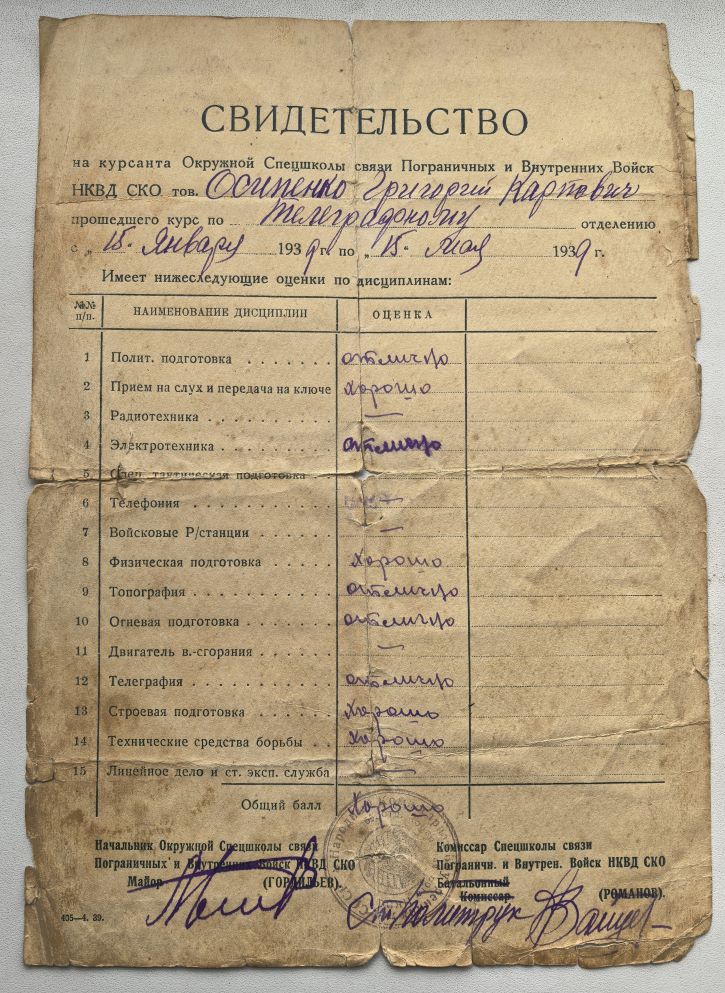 СВИДЕТЕЛЬСТВО
на курсанта Окружной Спецшколы связи Пограничных и Внутренних Войск
НКВД СКО тов. Осипенко Григорий Карпович
прошедшего курс по Телеграфному отделению
с „15" Января 1939 г. по „15" мая 1939 г.
Имеет нижеследующие оценки по дисциплинам:
№№ п/п. НАИМЕНОВАНИЕ ДИСЦИПЛИН ОЦЕНКА
1 Полит. подготовка отлично
2 Прием на слух и передача на ключе хорошо
3 Радиотехника —
4 Электротехника отлично
5 Спец. тактическая подготовка
6 Телефония
7 Войсковые Р/станции —
8 Физическая подготовка хорошо
9 Топография отлично
10 Огневая подготовка отлично
11 Двигатель в.-сгорания —
12 Телеграфия отлично
13 Строевая подготовка хорошо
14 Технические средства борьбы хорошо
15 Линейное дело и ст. эксп. служба —
Общий балл хорошо
Начальник Окружной Спецшколы связи
Пограничных и Внутренних Войск НКВД СКО
Майор (ГОРДИЛЬЕВ).
Комиссар Спецшколы связи
Погранични. и Внутрен. Войск НКВД СКО
Батальонный
Комиссар (РОМАНОВ).
Ст. политрук
405—4. 39.